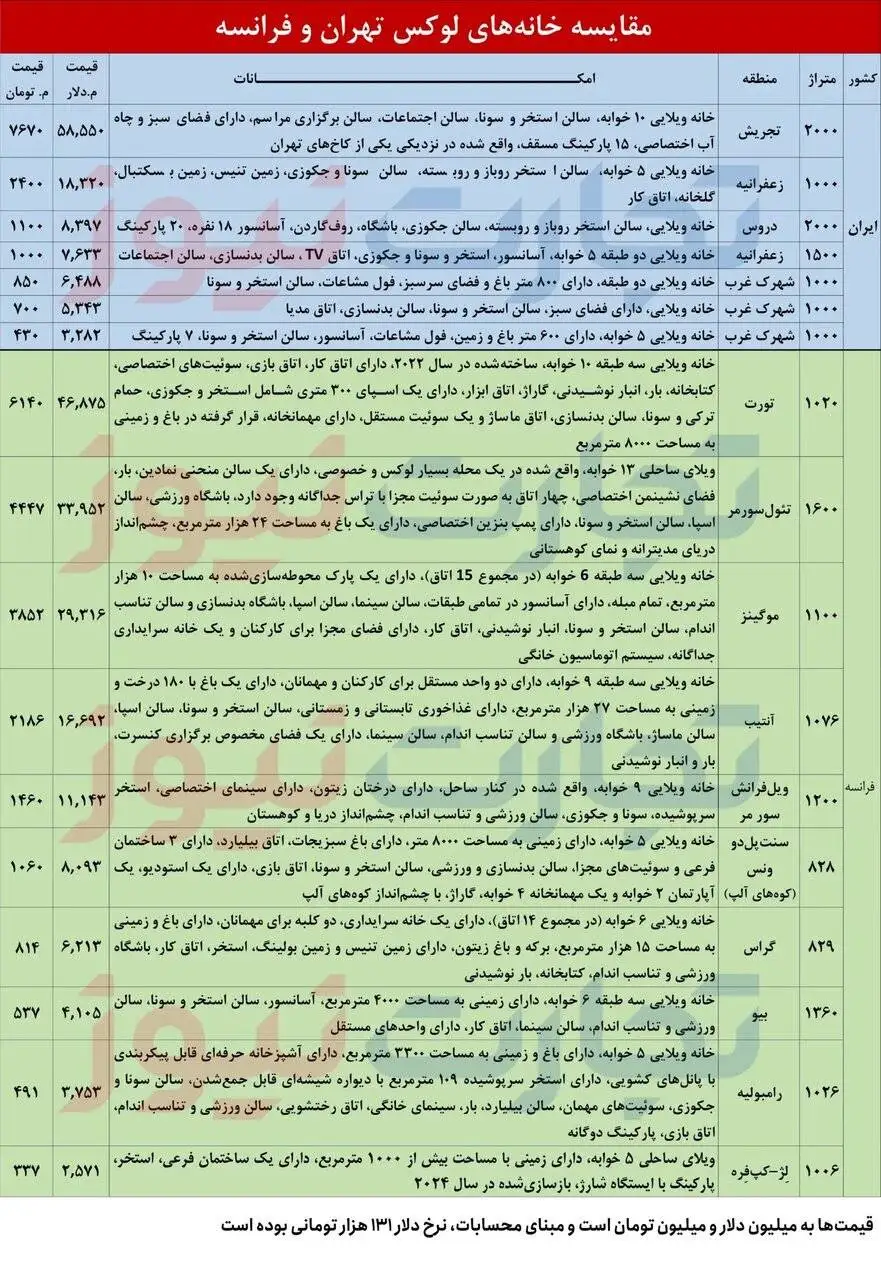 مقایسه خانه‌های لوکس تهران و فرانسه
کشور متراژ منطقه امکـــانات قیمت م.دلار قیمت م. تومان
ایران
۲۰۰۰ تجریش
خانه ویلایی ۱۰ خوابه، سالن استخر و سونا، سالن اجتماعات، سالن برگزاری مراسم، دارای فضای سبز و چاه
آب اختصاصی، ۱۵ پارکینگ مسقف، واقع شده در نزدیکی یکی از کاخ‌های تهران
۵۸,۵۵۰ ۷۶۷۰
۱۰۰۰ زعفرانیه
خانه ویلایی ۵ خوابه، سالن استخر روباز و روبسته، سالن سونا و جکوزی، زمین تنیس، زمین بسکتبال،
گلخانه، اتاق کار
۱۸,۳۲۰ ۲۴۰۰
۲۰۰۰ دروس
خانه ویلایی، سالن استخر روباز و روبسته، سالن جکوزی، باشگاه، روف‌گاردن، آسانسور ۱۸ نفره، ۲۰ پارکینگ
۸,۳۹۷ ۱۱۰۰
۱۵۰۰ زعفرانیه
خانه ویلایی دو طبقه ۵ خوابه، آسانسور، استخر و سونا و جکوزی، اتاق TV ، سالن بدنسازی، سالن اجتماعات
۷,۶۳۳ ۱۰۰۰
۱۰۰۰ شهرک غرب
خانه ویلایی دو طبقه، دارای ۸۰۰ متر باغ و فضای سرسبز، فول مشاعات، سالن استخر و سونا
۶,۴۸۸ ۸۵۰
۱۰۰۰ شهرک غرب
خانه ویلایی، دارای فضای سبز، سالن استخر و سونا، سالن بدنسازی، اتاق مدیا
۵,۳۴۳ ۷۰۰
۱۰۰۰ شهرک غرب
خانه ویلایی ۵ خوابه، دارای ۶۰۰ متر باغ و زمین، فول مشاعات، آسانسور، سالن استخر و سونا، ۷ پارکینگ
۳,۲۸۲ ۴۳۰
فرانسه
۱۰۲۰ تورت
خانه ویلایی سه طبقه ۱۰ خوابه، ساخته‌شده در سال ۲۰۲۲، دارای اتاق کار، اتاق بازی، سوئیت‌های اختصاصی،
کتابخانه، بار، انبار نوشیدنی، گاراژ، اتاق ابزار، دارای یک اسپای ۳۰۰ متری شامل استخر و جکوزی، حمام
ترکی و سونا، سالن بدنسازی، اتاق ماساژ و یک سوئیت مستقل، دارای مهمانخانه، قرار گرفته در باغ و زمینی
به مساحت ۸۰۰۰ مترمربع
۴۶,۸۷۵ ۶۱۴۰
۱۶۰۰ تئول‌سورمر
ویلای ساحلی ۱۳ خوابه، واقع شده در یک محله بسیار لوکس و خصوصی، دارای یک سالن منحنی نمادین، بار،
فضای نشیمن اختصاصی، چهار اتاق به صورت سوئیت مجزا با تراس جداگانه وجود دارد، باشگاه ورزشی، سالن
اسپا، سالن استخر و سونا، دارای پمپ بنزین اختصاصی، دارای یک باغ به مساحت ۲۴ هزار مترمربع، چشم‌انداز
دریای مدیترانه و نمای کوهستانی
۳۳,۹۵۲ ۴۴۴۷
۱۱۰۰ موگینز
خانه ویلایی سه طبقه 6 خوابه (در مجموع 15 اتاق)، دارای یک پارک محوطه‌سازی‌شده به مساحت ۱۰ هزار
مترمربع، تمام مبله، دارای آسانسور در تمامی طبقات، سالن سینما، سالن اسپا، باشگاه بدنسازی و سالن تناسب
اندام، سالن استخر و سونا، انبار نوشیدنی، اتاق کار، دارای فضای مجزا برای کارکنان و یک خانه سرایداری
جداگانه، سیستم اتوماسیون خانگی
۲۹,۳۱۶ ۳۸۵۲
۱۰۷۶ آنتیب
خانه ویلایی سه طبقه ۹ خوابه، دارای دو واحد مستقل برای کارکنان و مهمانان، دارای یک باغ با ۱۸۰ درخت و
زمینی به مساحت ۲۷ هزار مترمربع، دارای غذاخوری تابستانی و زمستانی، سالن استخر و سونا، سالن اسپا،
سالن ماساژ، باشگاه ورزشی و سالن تناسب اندام، سالن سینما، دارای یک فضای مخصوص برگزاری کنسرت،
بار و انبار نوشیدنی
۱۶,۶۹۲ ۲۱۸۶
۱۲۰۰ ویل‌فرانش سور مر
خانه ویلایی ۹ خوابه، واقع شده در کنار ساحل، دارای درختان زیتون، دارای سینمای اختصاصی، استخر
سرپوشیده، سونا و جکوزی، سالن ورزشی و تناسب اندام، چشم‌انداز دریا و کوهستان
۱۱,۱۴۳ ۱۴۶۰
۸۲۸ سنت‌پل‌دو ونس (کوه‌های آلپ)
خانه ویلایی ۵ خوابه، دارای زمینی به مساحت ۸۰۰۰ متر، دارای باغ سبزیجات، اتاق بیلیارد، دارای ۳ ساختمان
فرعی و سوئیت‌های مجزا، سالن بدنسازی و ورزشی، سالن استخر و سونا، اتاق بازی، دارای یک استودیو، یک
آپارتمان ۲ خوابه و یک مهمانخانه ۴ خوابه، گاراژ، با چشم‌انداز کوه‌های آلپ
۸,۰۹۳ ۱۰۶۰
۸۲۹ گراس
خانه ویلایی ۶ خوابه (در مجموع ۱۴ اتاق)، دارای یک خانه سرایداری، دو کلبه برای مهمانان، دارای باغ و زمینی
به مساحت ۱۵ هزار مترمربع، برکه و باغ زیتون، دارای زمین تنیس و زمین بولینگ، استخر، اتاق کار، باشگاه
ورزشی و تناسب اندام، کتابخانه، بار نوشیدنی
۶,۲۱۳ ۸۱۴
۱۳۶۰ بیو
خانه ویلایی سه طبقه ۶ خوابه، دارای زمینی به مساحت ۴۰۰۰ مترمربع، آسانسور، سالن استخر و سونا، سالن
ورزشی و تناسب اندام، سالن سینما، اتاق کار، دارای واحدهای مستقل
۴,۱۰۵ ۵۳۷
۱۰۲۶ رامبولیه
خانه ویلایی ۵ خوابه، دارای باغ و زمینی به مساحت ۳۳۰۰ مترمربع، دارای آشپزخانه حرفه‌ای قابل پیکربندی
با پانل‌های کشویی، دارای استخر سرپوشیده ۱۰۹ مترمربع با دیواره شیشه‌ای قابل جمع‌شدن، سالن سونا و
جکوزی، سوئیت‌های مهمان، سالن بیلیارد، بار، سینمای خانگی، اتاق رختشویی، سالن ورزشی و تناسب اندام،
اتاق بازی، پارکینگ دوگانه
۳,۷۵۳ ۴۹۱
۱۰۰۶ لِژ-کپ‌فِره
ویلای ساحلی ۵ خوابه، دارای زمینی با مساحت بیش از ۱۰۰۰ مترمربع، دارای یک ساختمان فرعی، استخر،
پارکینگ با ایستگاه شارژ، بازسازی‌شده در سال ۲۰۲۴
۲,۵۷۱ ۳۳۷
قیمت‌ها به میلیون دلار و میلیون تومان است و مبنای محسابات، نرخ دلار ۱۳۱ هزار تومانی بوده است
تجارت نیوز
تجارت نیوز
تجارت نیوز
تجارت نیوز